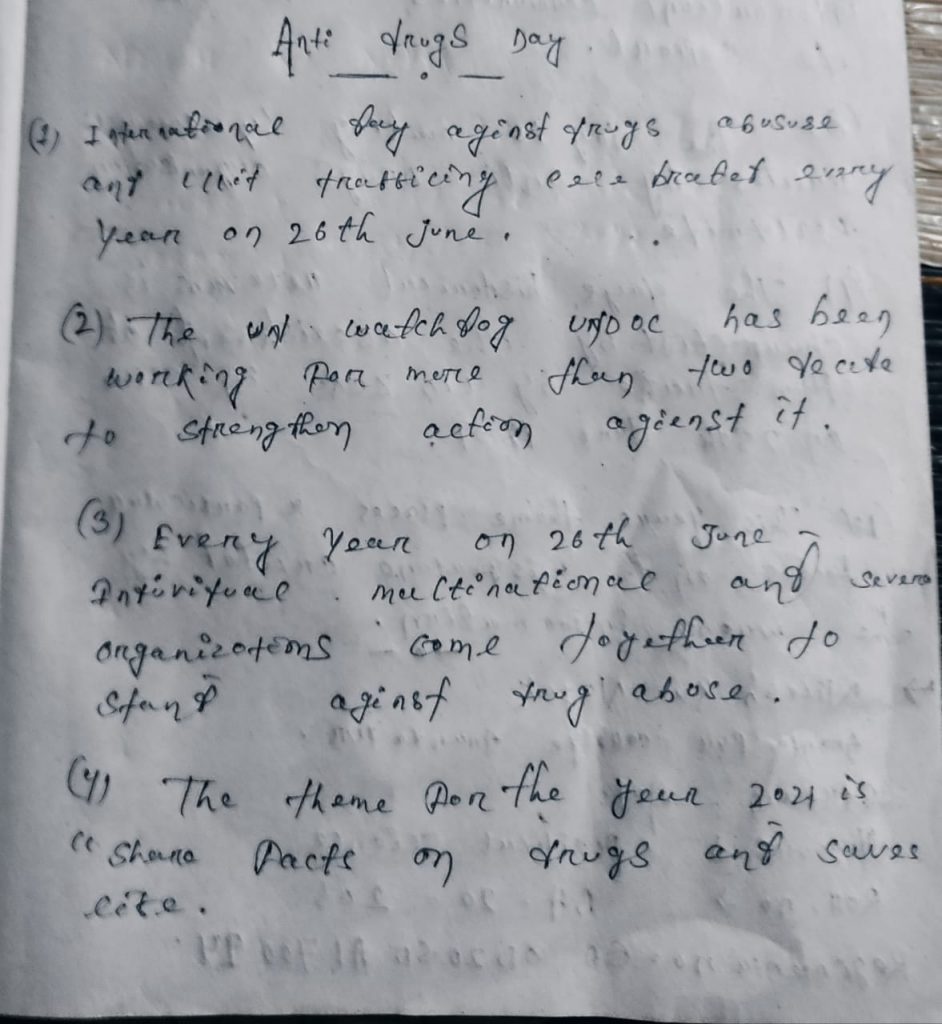 Anti drugs Day.
(1) International day aginst drugs abususe
and illit trafficing celebrated every
Year on 26th June.
(2) The UN watchdog UNDOC has been
working for more than two decate
to strengthen action agienst it.
(3) Every Year on 26th June -
Individual multinational and severa
organizotions come together to
Stand aginst drug abuse.
(4) The theme for the year 2021 is
"Share facts on drugs and saves
life.